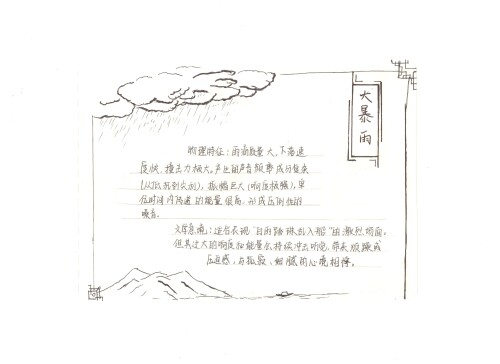 大暴雨
物理特征：雨滴数量大、下落速
度快、撞击力极大。产生的声音频率成分复杂
（从低沉到尖利），振幅巨大（响度极强），单
位时间内传递的能量很高，形成压倒性的
噪音。
文学意境：适合表现“白雨跳珠乱入船”的激烈场面，
但其过大的响度和能量会持续冲击听觉，带来
压迫感，与孤寂、细腻的心境相悖。